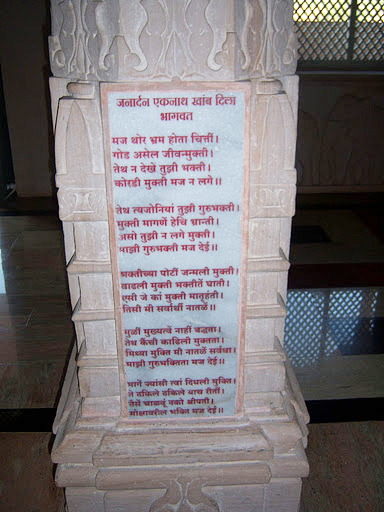 जनार्दन एकनाथ खांब दिला
भागवत
मज थोर भ्रम होता चित्तीं।
गोड असेल जीवन्मुक्ती।
तेथ न देखे तुझी भक्ती।
कोरडी मुक्ती मज न लगे॥
तेथ त्यजोनियां तुझी गुरुभक्ती।
मुक्ती मागणें हेचि भ्रान्ती।
असो तुझी न लगे मुक्ती।
माझी गुरुभक्ती मज देईं॥
भक्तीच्या पोटीं जन्मली मुक्ती।
वाढली मुक्ती भक्तीतें घाती।
एसी जे कां मुक्ती मातृहंती।
तिसी मी सर्वार्थीं नातळें॥
मुळीं मुख्यत्वें नाहीं बद्धता।
तेथ कैंची काढिली मुक्तता।
मिथ्या मुक्ति मी नातळें सर्वथा।
माझी गुरुभक्तिता मज देईं॥
मागें ज्यांसी त्वां दिधली मुक्ति।
ते ठकिले ठकिले याच रीतीं।
तैसें चाळवूं नको श्रीपती।
मोक्षावरील भक्ति मज देईं॥